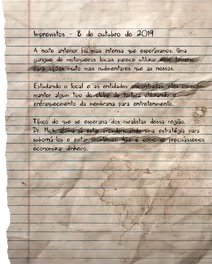 Imprevistos - 8 de outubro de 2019
A noite anterior foi mais intensa que esperávamos. Uma
gangue de motoqueiros locais parece utilizar esse terreno
para ações muito mais rudimentares que as nossas.
Estudando o local e as entidades encontradas, eles parecem
manter algum tipo de clube de tortura utilizando o
enfraquecimento da membrana para entretenimento.
Típico do que se esperaria dos ocultistas dessa região.
Dr. afirma já estar providenciando uma estratégia para
suborná-los e evitar problemas. Não é como se precisássemos
economizar dinheiro.